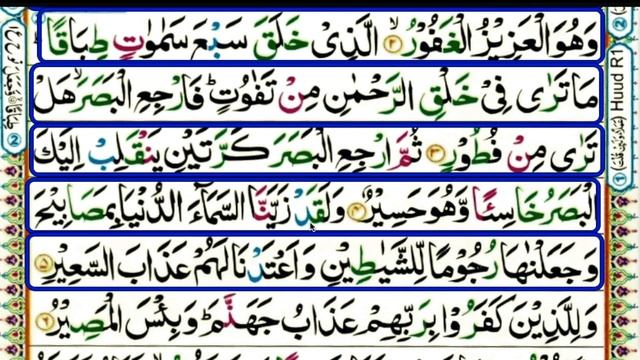 وَهُوَ الْعَزِيْزُ الْغَفُوْرُ ۙ﴿۲﴾ الَّذِىْ خَلَقَ سَبْعَ سَمٰوٰتٍ طِبَاقًا ؕ
مَا تَرٰى فِىْ خَلْقِ الرَّحْمٰنِ مِنْ تَفٰوُتٍ ؕ فَارْجِعِ الْبَصَرَ ۙ هَلْ
تَرٰى مِنْ فُطُوْرٍ ﴿۳﴾ ثُمَّ ارْجِعِ الْبَصَرَ كَرَّتَيْنِ يَنْقَلِبْ اِلَيْكَ
الْبَصَرُ خَاسِئًا وَّهُوَ حَسِيْرٌ ﴿۴﴾ وَلَقَدْ زَيَّنَّا السَّمَآءَ الدُّنْيَا بِمَصَابِيْحَ
وَجَعَلْنٰهَا رُجُوْمًا لِّلشَّيٰطِيْنِ وَاَعْتَدْنَا لَهُمْ عَذَابَ السَّعِيْرِ ﴿۵﴾
وَلِلَّذِيْنَ كَفَرُوْا بِرَبِّهِمْ عَذَابُ جَهَنَّمَ ؕ وَبِئْسَ الْمَصِيْرُ ﴿۶﴾
Huud R1